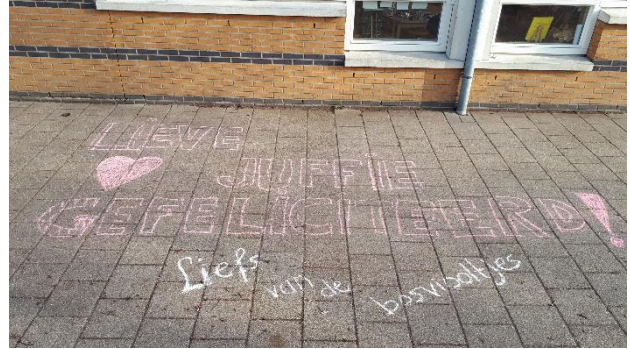 LIEVE
JUFFIE
GEFELICITEERD!
Liefs van de bosviooltjes